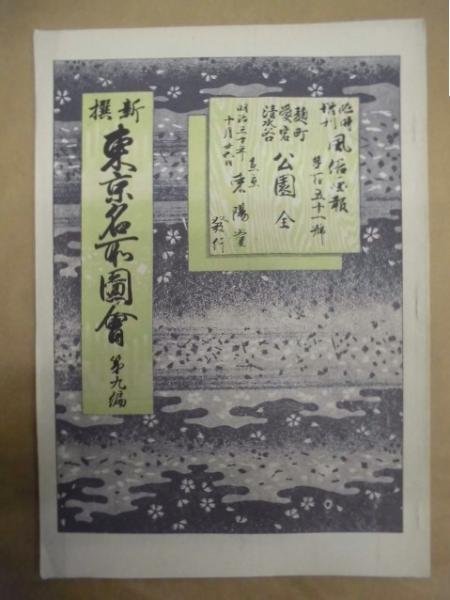 臨時増刊 風俗画報 第百五十一号
麹町 愛宕 清水谷 公園 全
明治三十年十月廿六日 東京 東陽堂 発行
新撰 東京名所圖會 第九編